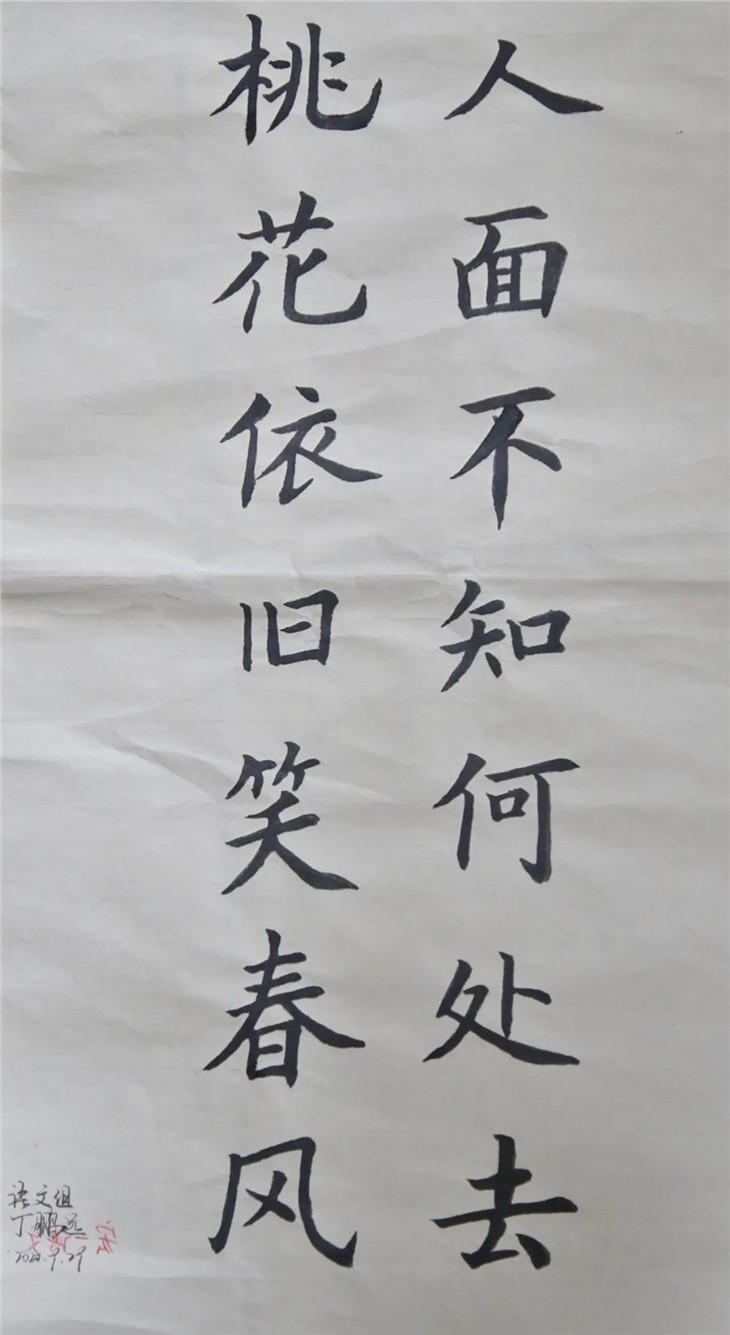 人面不知何处去
桃花依旧笑春风
语文组
丁鹏远